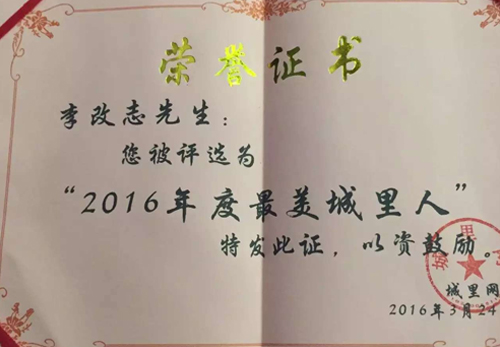 荣誉证书
李改志先生：
您被评选为
“2016年度最美城里人”
特发此证，以资鼓励。
城里网
2016年3月24